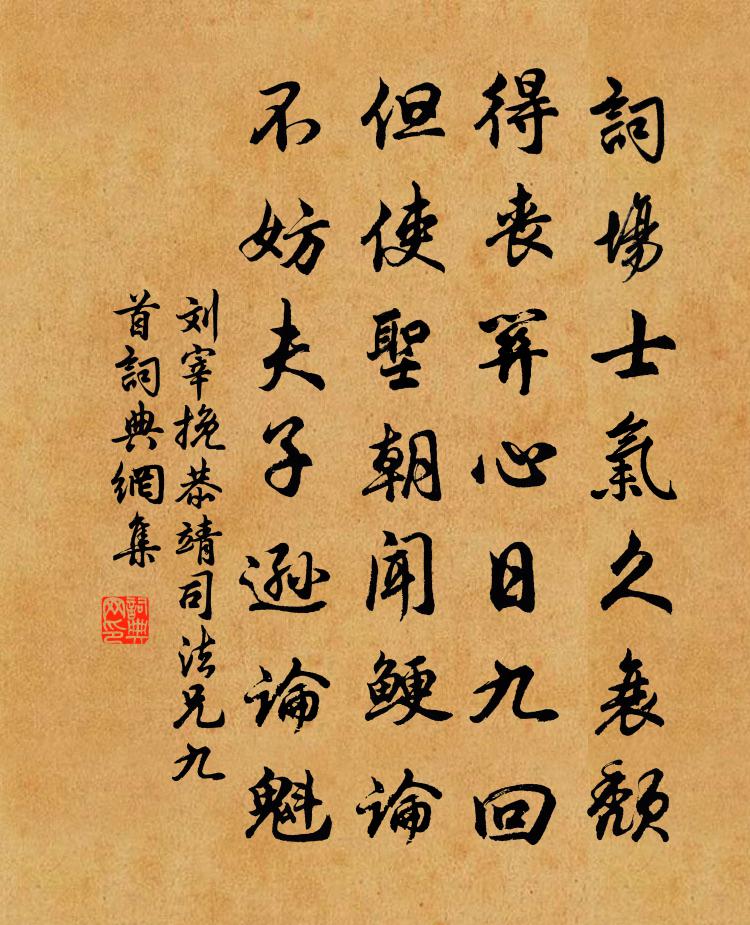 詞場士氣久衰頹
得喪關心日九回
但使聖朝聞鯁論
不妨夫子遜論魁
刘宰挽恭靖司法兄九
首詞典網集
詞典网印